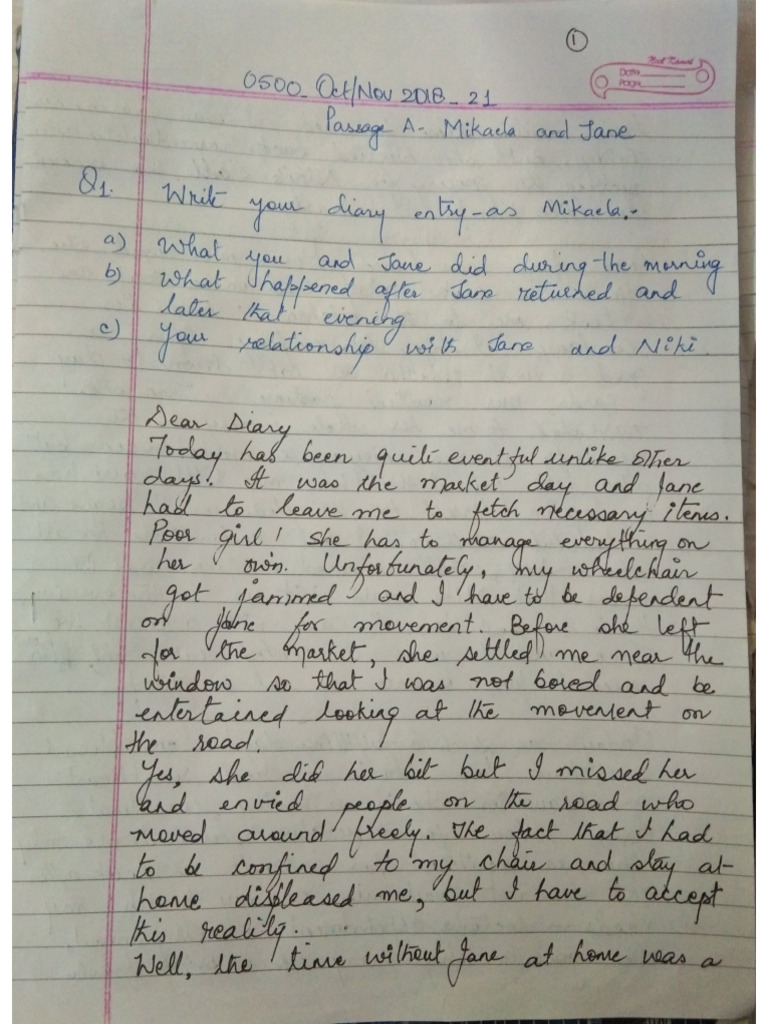 1
Neel Kamal
DATE
PAGE
0500_Oct/Nov 2018_21
Passage A- Mikaela and Jane
Q1. Write your diary entry-as Mikaela.-
a) What you and Jane did during the morning
b) What happened after Jane returned and
later that evening
c) Your relationship with Jane and Niki.
Dear Diary
Today has been quite eventful unlike other
days. It was the market day and Jane
had to leave me to fetch necessary items.
Poor girl! She has to manage everything on
her own. Unfortunately, my wheelchair
got jammed and I have to be dependent
on Jane for movement. Before she left
for the market, she settled me near the
window so that I was not bored and be
entertained looking at the movement on
the road.
Yes, she did her bit but I missed her
and envied people on the road who
moved around freely. The fact that I had
to be confined to my chair and stay at-
home displeased me, but I have to accept
this reality.
Well, the time without Jane at home was a